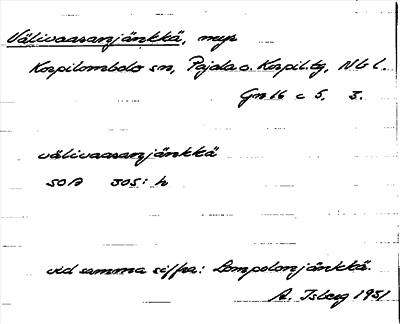 Välivaaranjänkkä, myr
Korpilombolo sn, Pajala o. Korpil. tg, Nb l.
Gn 16 c 5, 3.
välivaaranjänkkä
50A 305: h
vid samma siffra: Lompolonjänkkä.
A. Isberg 1951